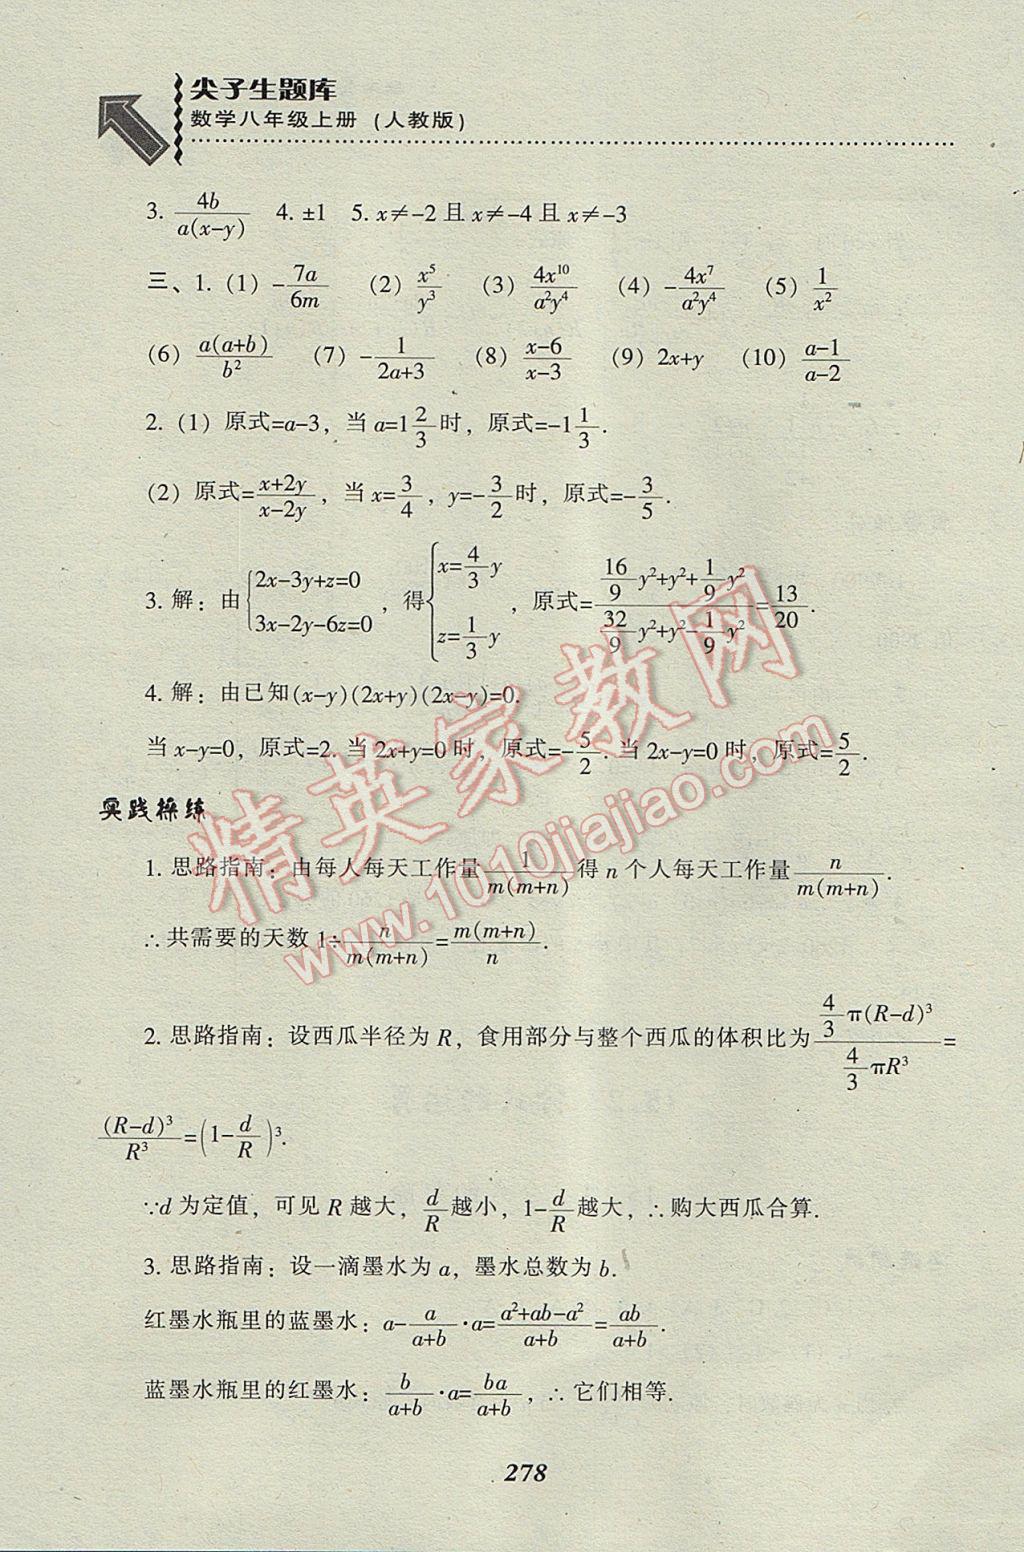 尖子生题库
数学八年级上册 (人教版)
3. \frac{4b}{a(x-y)} 4. ±1 5. x≠-2 且 x≠-4 且 x≠-3
三、1. (1) -\frac{7a}{6m} (2) \frac{x^5}{y^3} (3) \frac{4x^{10}}{a^2y^4} (4) -\frac{4x^7}{a^2y^4} (5) \frac{1}{x^2}
(6) \frac{a(a+b)}{b^2} (7) -\frac{1}{2a+3} (8) \frac{x-6}{x-3} (9) 2x+y (10) \frac{a-1}{a-2}
2. (1) 原式=a-3, 当 a=1\frac{2}{3}时, 原式=-1\frac{1}{3}.
(2) 原式=\frac{x+2y}{x-2y}, 当 x=\frac{3}{4}, y=-\frac{3}{2}时, 原式=-\frac{3}{5}.
3. 解: 由\begin{cases}2x-3y+z=0\\3x-2y-6z=0\end{cases}, 得\begin{cases}x=\frac{4}{3}y\\z=\frac{1}{3}y\end{cases}, 原式=\frac{\frac{16}{9}y^2+y^2+\frac{1}{9}y^2}{\frac{32}{9}y^2+y^2-\frac{1}{9}y^2}=\frac{13}{20}.
4. 解: 由已知(x-y)(2x+y)(2x-y)=0.
当 x-y=0, 原式=2. 当 2x+y=0 时, 原式=-\frac{5}{2}. 当 2x-y=0 时, 原式=\frac{5}{2}.
实践操练
1. 思路指南: 由每人每天工作量\frac{1}{m(m+n)}得 n 个人每天工作量\frac{n}{m(m+n)}.
∴ 共需要的天数 1÷\frac{n}{m(m+n)}=\frac{m(m+n)}{n}.
2. 思路指南: 设西瓜半径为 R, 食用部分与整个西瓜的体积比为\frac{\frac{4}{3}π(R-d)^3}{\frac{4}{3}πR^3}=
\frac{(R-d)^3}{R^3}=\left(1-\frac{d}{R}\right)^3.
∵d 为定值, 可见 R 越大, \frac{d}{R}越小, 1-\frac{d}{R}越大, ∴ 购大西瓜合算.
3. 思路指南: 设一滴墨水为 a, 墨水总数为 b.
红墨水瓶里的蓝墨水: a-\frac{a}{a+b}·a=\frac{a^2+ab-a^2}{a+b}=\frac{ab}{a+b}.
蓝墨水瓶里的红墨水: \frac{b}{a+b}·a=\frac{ba}{a+b}, ∴ 它们相等.
278
精英家教网
www.1010jiajiao.com